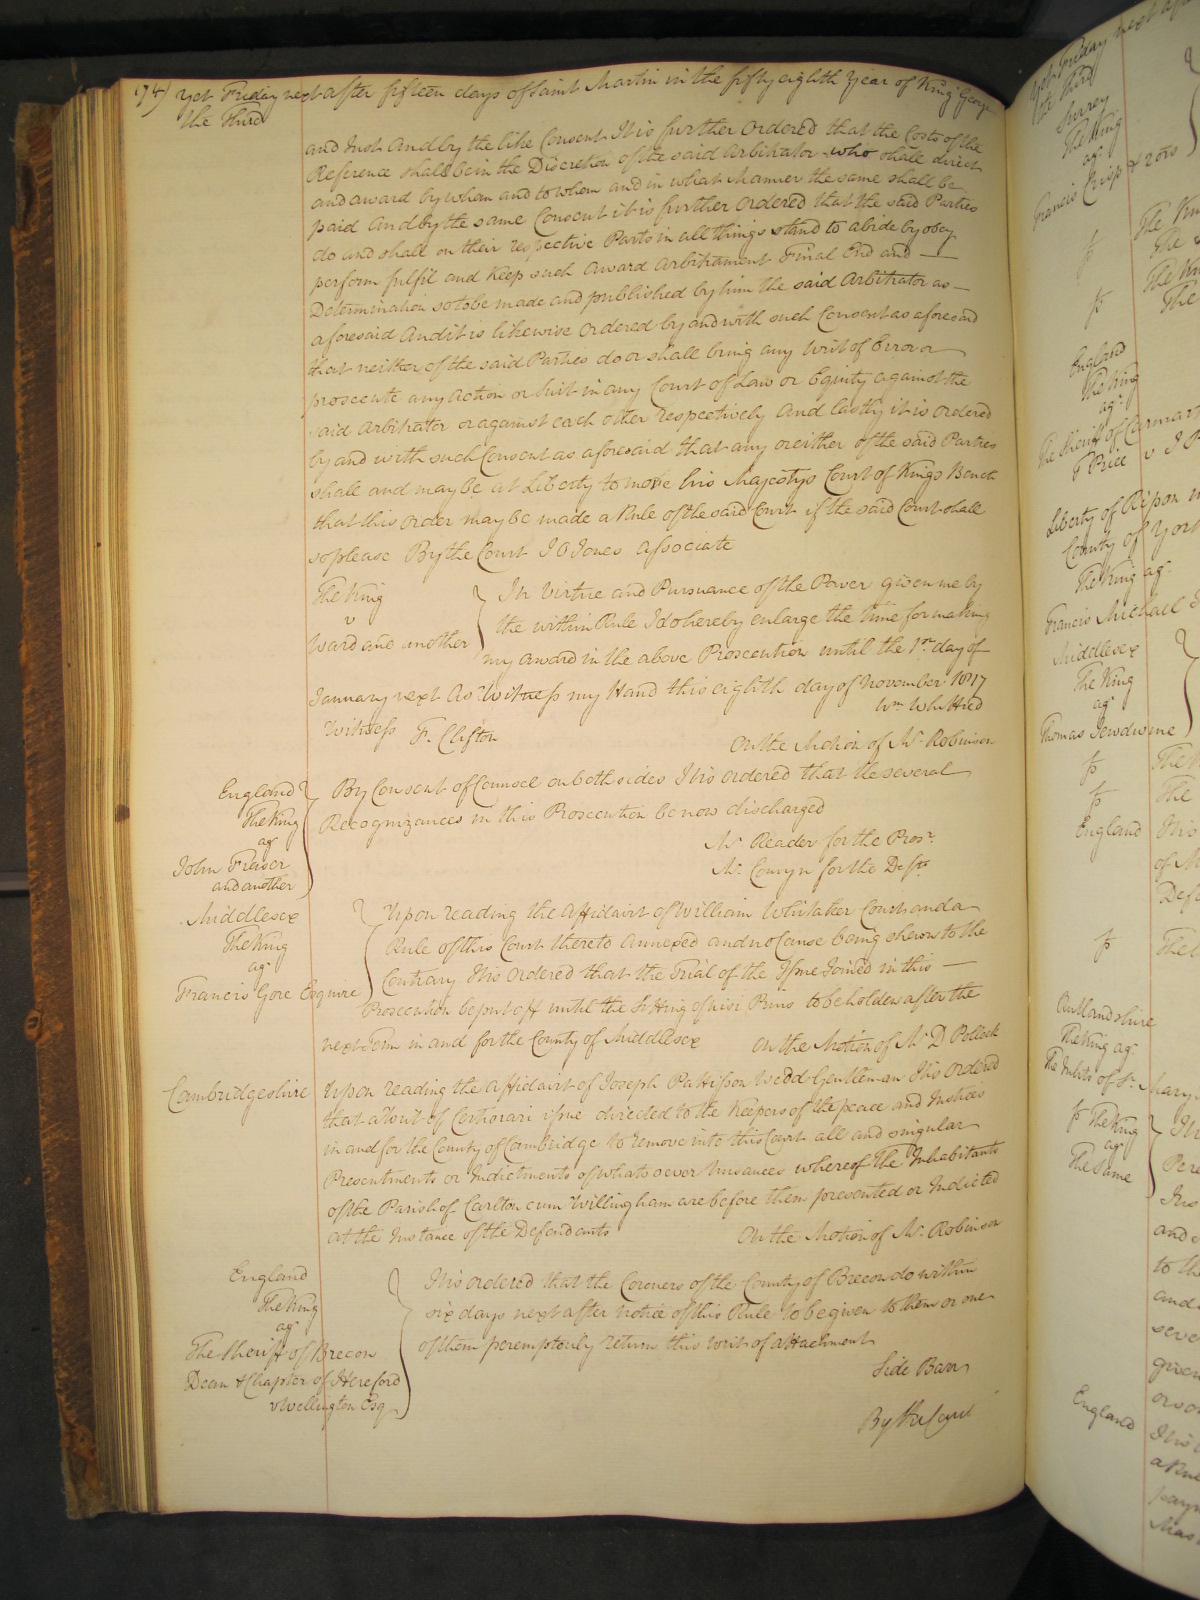 174) Yet Friday next after fifteen days of Saint Martin in the fifty eighth Year of King George
the Third
and Just And by the like Consent It is further Ordered that the Costs of the
Reference shall be in the Discretion of the said Arbitrator who shall direct
and award by whom and to whom and in what Manner the same shall be
paid And by the same Consent it is further Ordered that the said Parties
do and shall on their respective Parts in all things stand to abide by obey
perform fulfil and keep such Award Arbitrament Final End and
Determination so to be made and published by him the said Arbitrator as
aforesaid And it is likewise Ordered by and with such Consent as aforesaid
that neither of the said Parties do or shall bring any Writ of Error or
prosecute any Action or Suit in any Court of Law or Equity against the
said Arbitrator or against each other respectively And lastly it is Ordered
by and with such Consent as aforesaid that any or either of the said Parties
shall and may be at Liberty to move his Majestys Court of Kings Bench
that this Order may be made a Rule of the said Court if the said Court shall
so please By the Court J O Jones Associate
The King
v
Ward and another
In Virtue and Pursuance of the Power given me by
the within Rule I do hereby enlarge the time for making
my Award in the above Prosecution until the 1st day of
January next As Witness my Hand this eighth day of November 1817
Wm
Witness F. Clifton
On the Motion of Mr. Robinson
England
The King
agt
John Fraser
and another
By Consent of Counsel on both sides It is ordered that the several
Recognizances in this Prosecution be now discharged
Mr. Reader for the Prosr
Mr. Comyn for the Defts
Middlesex
The King
agt
Francis Gore Esquire
Upon reading the Affidavit of William Whitaker Couch and a
Rule of this Court thereto Annexed and no Cause being shewn to the
Contrary It is Ordered that the Trial of the Issue Joined in this
Prosecution be put off until the Sitting of Nisi Prius to be holden after the
next Term in and for the County of Middlesex On the Motion of Mr. D Pollock
Cambridgeshire
Upon reading the Affidavit of Joseph Pattisson Wedd Gentleman It is Ordered
that a Writ of Certiorari issue directed to the Keepers of the peace and Justices
in and for the County of Cambridge to remove into this Court all and singular
Presentments or Indictments of whatsoever Nusances whereof The Inhabitants
of the Parish of Carlton cum Willingham are before them presented or Indicted
at the Instance of the Defendants On the Motion of Mr. Robinson
England
The King
agt
The Sheriff of Brecon
Dean & Chapter of Hereford
v Wellington Esq
It is ordered that the Coroners of the County of Brecon do within
six days next after notice of this Rule to be given to them or one
of them peremptorily return this writ of attachment
Side Barr
By the Court
Yet Friday next
the Third
Surrey
The King
agt
Francis
England
The King
agt
The Sheriff of
Price v J
Liberty of Ripon
County of York
The King agt
Francis Michael
Middlesex
The King
agt
Thomas
England
It is
The King agt
The Inhts of St. Mary
The King
agt
The Same
England